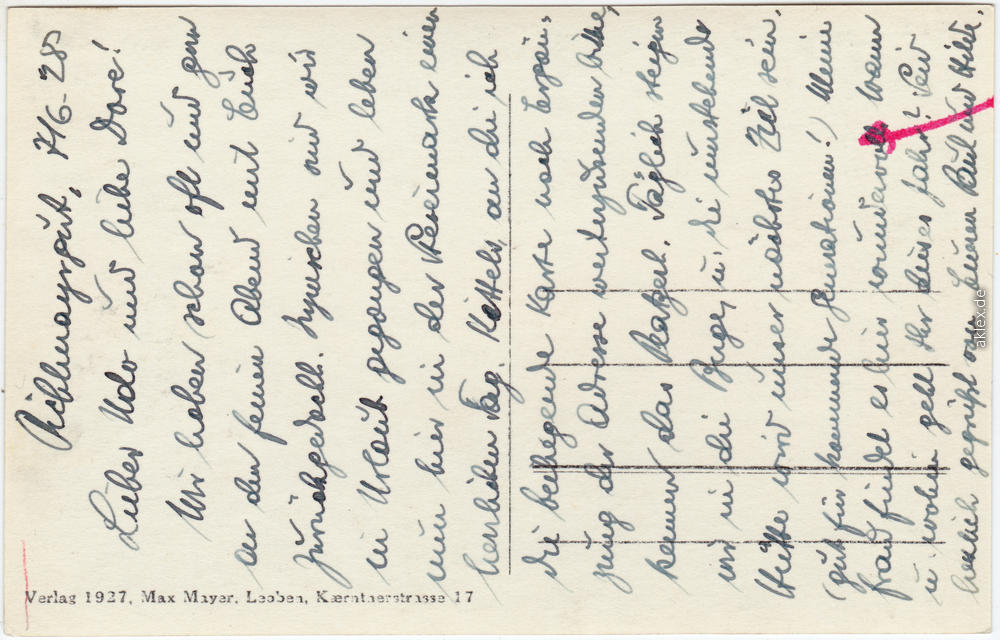 Aichmayrgut, 7/6-28
Lieber Udo und liebe Dore!
Wir haben schon oft und gern
an den feinen Abend mit Euch
zurückgedacht. Inzwischen sind wir
in Urlaub gegangen und leben
nun hier in der Steiermark einen
herrlichen Tag. an die ich
die beiliegende Karte nach Ergän-
zung der Adresse weiterzusenden bitte,
kennen das Täglich steigen
wir in die Berge, u. die umstehende
Hütte wird unser nächstes Ziel sein.
(gut für kommende Generationen!) Meine
Frau findet es hier wundervoll. Wann
u. wohin geht Ihr dieses Jahr? Seid
herzlich gegrüßt von Eueren und Hilde.
Verlag 1927, Max Mayer, Leoben, Kærntnerstrasse 17
aklex.de